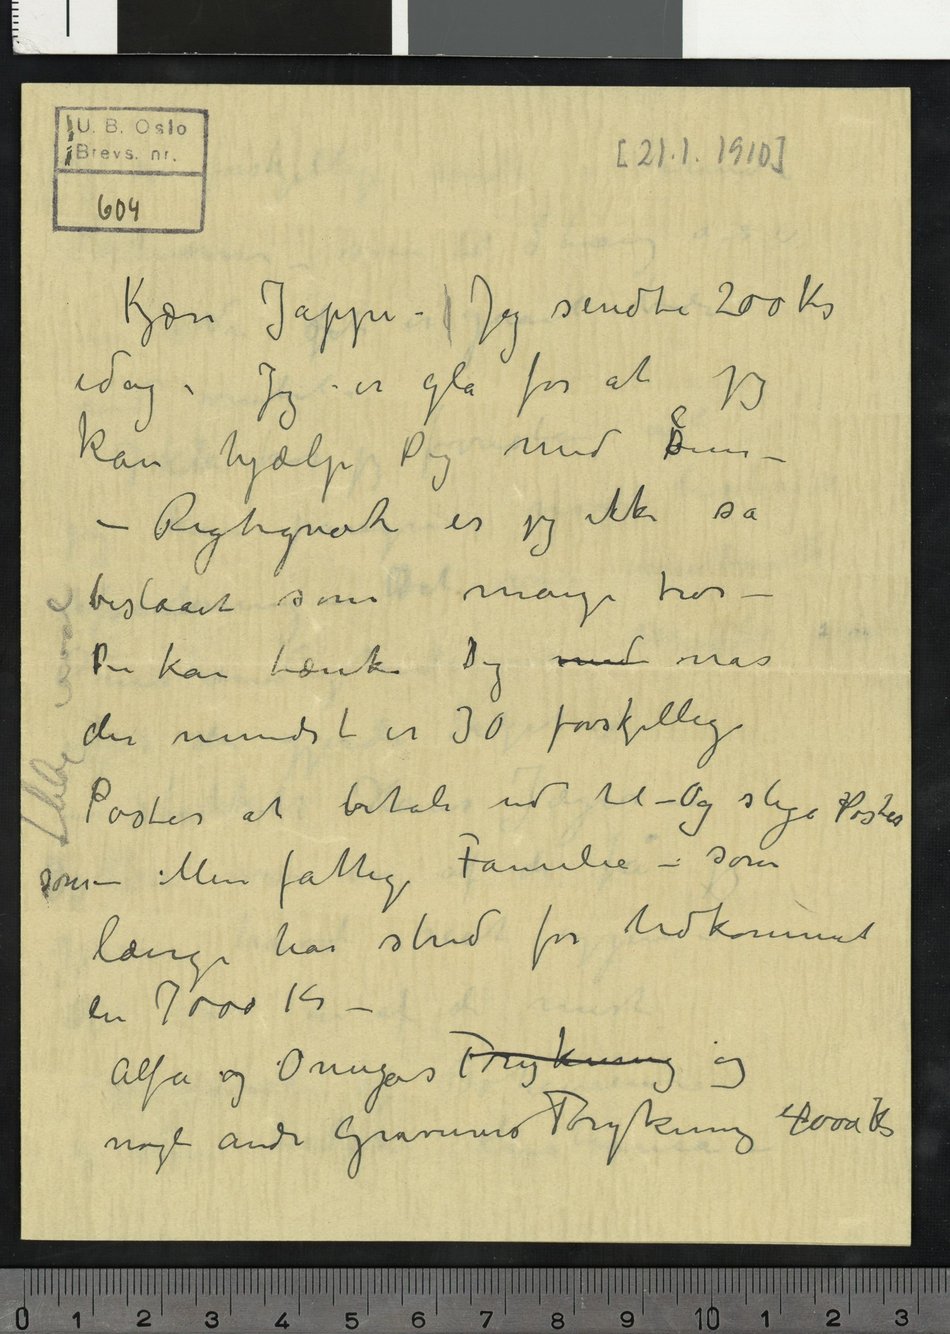 U. B. Oslo
Brevs. nr.
604
[21.1. 1910]
Kjære Jappe - Jeg sendte 200 Kr
idag - Jeg er gla for at jeg
kan hjælpe Dig med
- Rigtignok er jeg ikke så
beslaaet som mange tror -
Du kan tænke Dig med når
der mindst er 30 forskjellige
Poster at betale ud til - Og slige Poster
som - Min fattige Familie - som
længe har strid for Udkommet
en 7000 Kr -
Alfa og Omegas Trykning og
nogle andre Gravures Trykning 4000 Kr